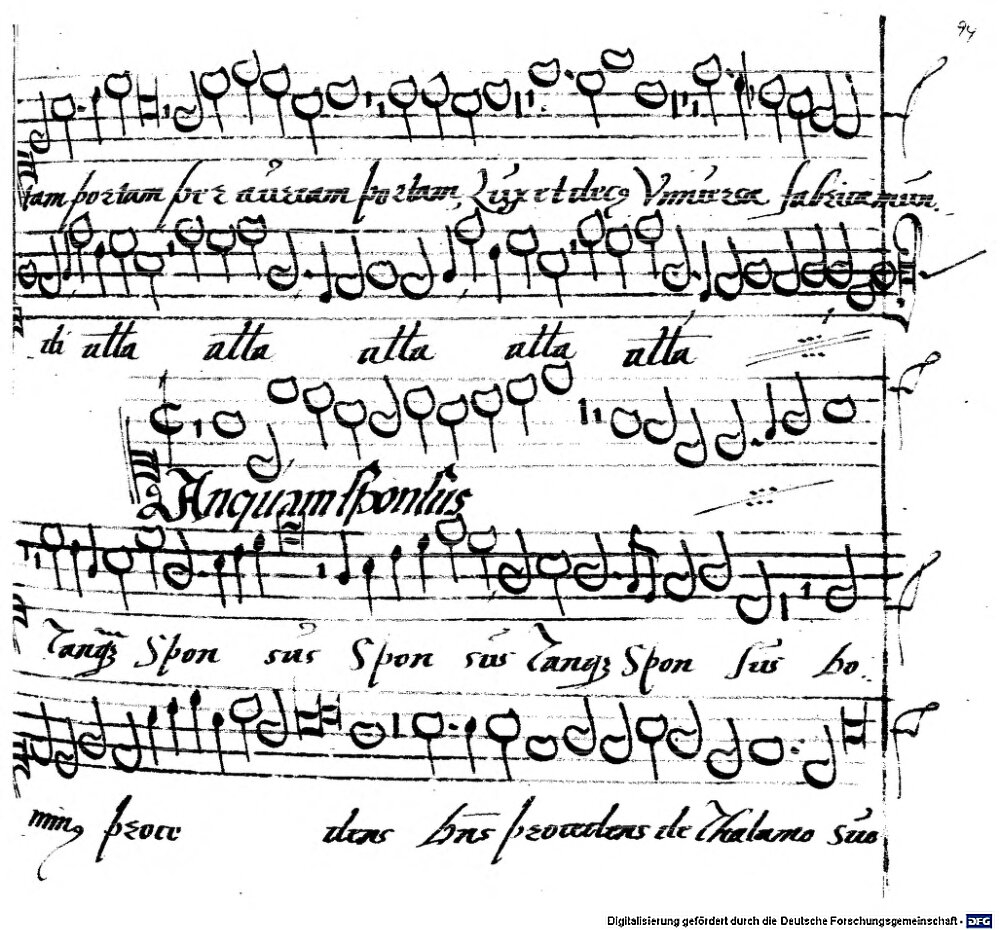 94
tam portam per auream portam, Lux et decq Vniuersae fabricae mun.
di alta alta alta alta alta
Tanquam sponsus
Tanqz Spon sus Spon sus Tanqz Spon sus ho.
minq proce dens hns procedens de Thalamo suo
Digitalisierung gefördert durch die Deutsche Forschungsgemeinschaft - DFG